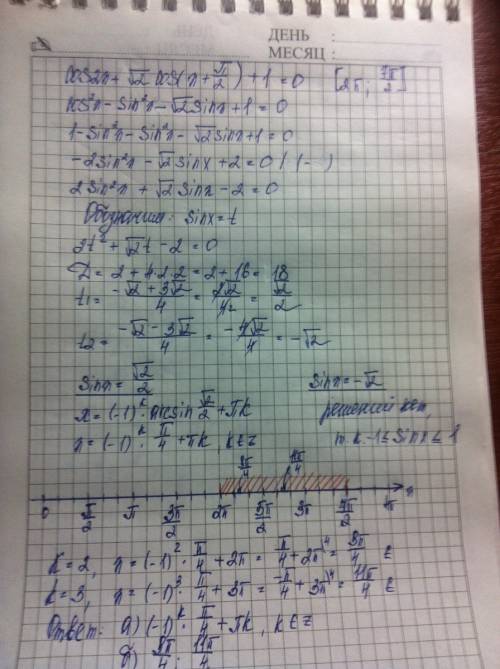 ДЕНЬ :
МЕСЯЦ :
cos2x + √2 cos(x + π/2) + 1 = 0 [2π; 7π/2]
cos²x - sin²x - √2 sinx + 1 = 0
1 - sin²x - sin²x - √2 sinx + 1 = 0
-2sin²x - √2 sinx + 2 = 0 | (-)
2sin²x + √2 sinx - 2 = 0
sinx = t
2t² + √2t - 2 = 0
D = 2 + 4·2·2 = 2 + 16 = 18
t₁ = (-√2 + 3√2)/4 = 2√2/4 = √2/2
t₂ = (-√2 - 3√2)/4 = -4√2/4 = -√2
sinx = √2/2 sinx = -√2
x = (-1)ᵏ arcsin √2/2 + πk решений нет,
x = (-1)ᵏ · π/4 + πk, k∈Z т.к. -1 ≤ sinx ≤ 1
9π/4 11π/4
0 π/2 π 3π/2 2π 5π/2 3π 7π/2 x
k = 2, x = (-1)² · π/4 + 2π = π/4 + 2π = 9π/4 ∈
k = 3, x = (-1)³ · π/4 + 3π = -π/4 + 3π = 11π/4 ∈
Ответ: а) (-1)ᵏ π/4 + πk, k∈Z
б) 9π/4; 11π/4